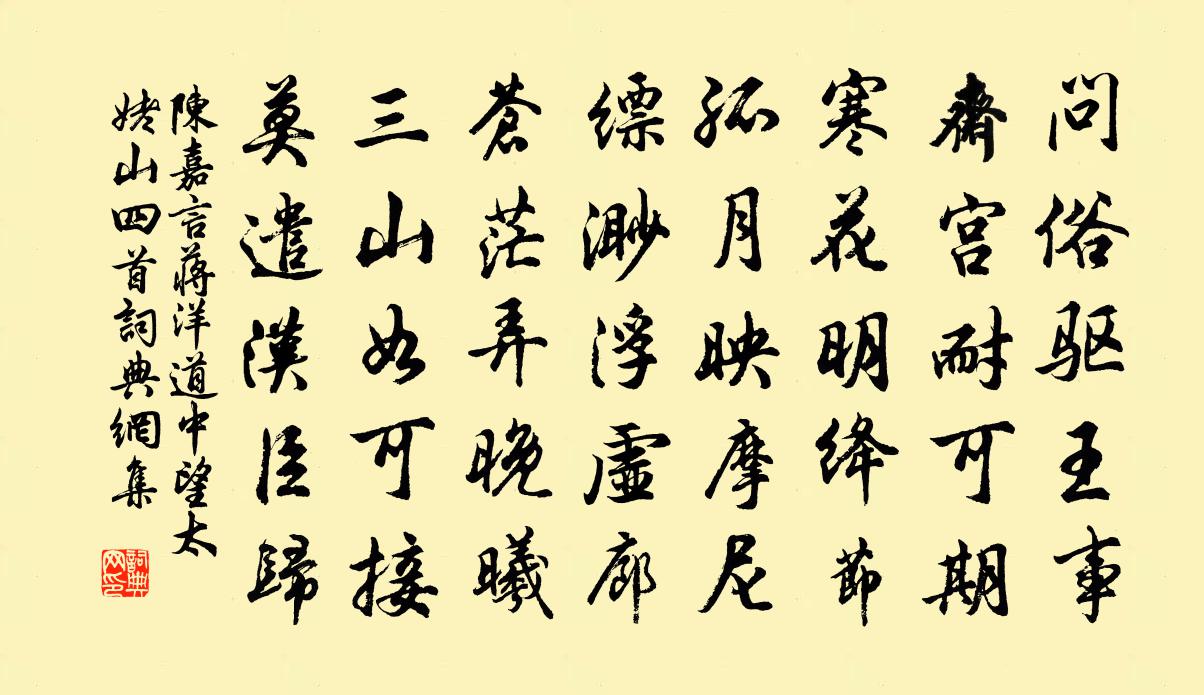 问俗驱王事
齋宫耐可期
寒花明绛節
孤月映摩尼
缥渺浮虚廊
蒼茫弄晚曦
三山如可接
莫遣漢臣歸
陳嘉言蒋洋道中望太
姥山四首詞典網集
詞典
网印